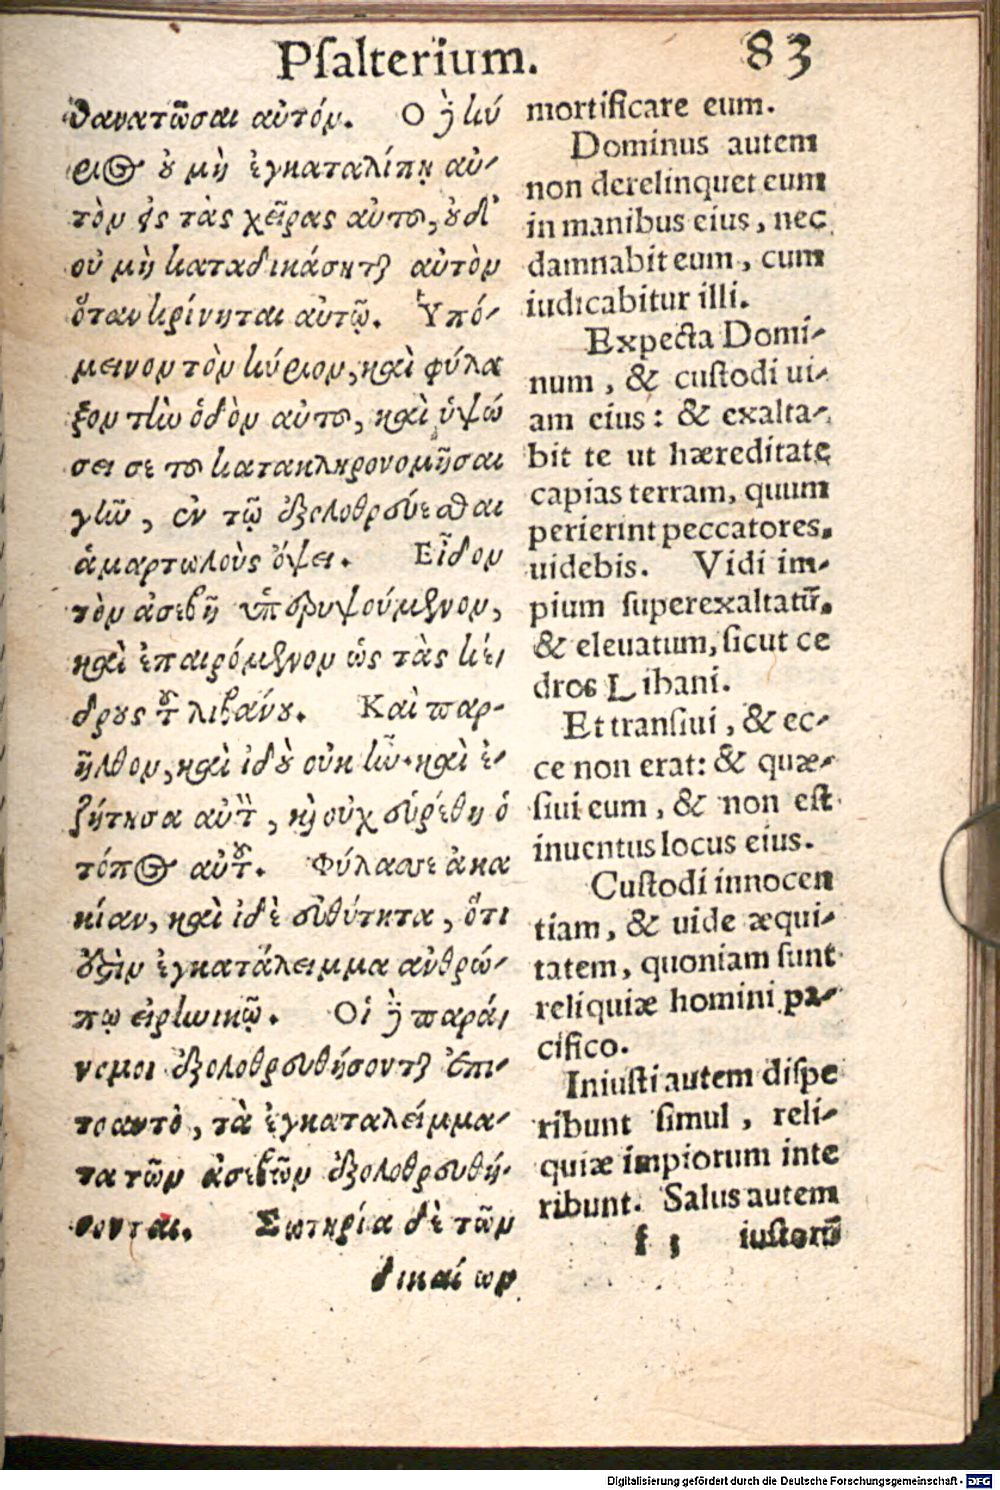 Psalterium. 83
θανατῶσαι αὐτόν. Ο ὃ κύ
ριος οὐ μὴ ἐγκαταλίπῃ αὐ-
τὸν εἰς τὰς χεῖρας αὐτοῦ, οὐδ'
οὐ μὴ καταδικάσηται αὐτὸν
ὅταν κρίνηται αὐτῷ. Ὑπό-
μεινον τὸν κύριον, καὶ φύλα
ξον τὴν ὁδὸν αὐτοῦ, καὶ ὑψώ
σει σε τοῦ κατακληρονομῆσαι
γῆν, ἐν τῷ ἐξολοθρεύεσθαι
ἁμαρτωλοὺς ὄψει. Εἶδον
τὸν ἀσεβῆ ὑπερυψούμενον,
καὶ ἐπαιρόμενον ὡς τὰς κέ-
δρους τοῦ λιβάνου. Καὶ παρ-
ῆλθον, καὶ ἰδοὺ οὐκ ἦν· καὶ ἐ-
ζήτησα αὐτὸν, καὶ οὐχ εὑρέθη ὁ
τόπος αὐτοῦ. Φύλασσε ἀκα
κίαν, καὶ ἰδὲ εὐθύτητα, ὅτι
ἐστὶν ἐγκατάλειμμα ἀνθρώ-
πῳ εἰρηνικῷ. Οἱ δὲ παρά-
νομοι ἐξολοθρευθήσονται ἐπι-
τοαυτὸ, τὰ ἐγκαταλείμμα-
τα τῶν ἀσεβῶν ἐξολοθρευθή-
σονται. Σωτηρία δὲ τῶν
δικαίων
mortificare eum.
Dominus autem
non derelinquet eum
in manibus eius, nec
damnabit eum, cum
iudicabitur illi.
Expecta Domi-
num, & custodi ui-
am eius: & exalta-
bit te ut hæreditate
capias terram, quum
perierint peccatores,
uidebis. Vidi im-
pium superexaltatū,
& eleuatum, sicut ce
dros Libani.
Et transiui, & ec-
ce non erat: & quæ-
siui eum, & non est
inuentus locus eius.
Custodi innocen
tiam, & uide æqui-
tatem, quoniam sunt
reliquiæ homini pa-
cifico.
Iniusti autem dispe
ribunt simul, reli-
quiæ impiorum inte
ribunt. Salus autem
f 3 iustorū
Digitalisierung gefördert durch die Deutsche Forschungsgemeinschaft - DFG